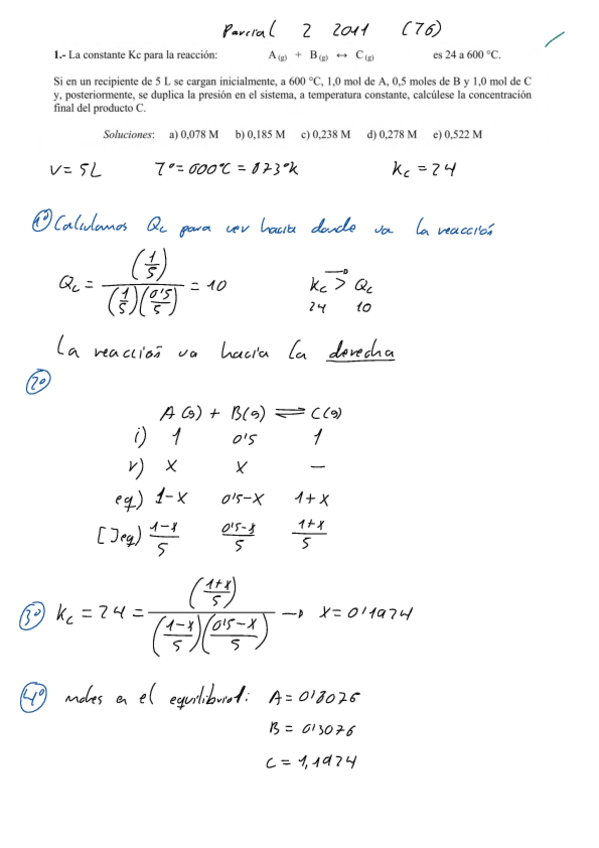 Parcial 2 2011 (76)
1.- La constante Kc para la reacción: A(g) + B(g) ↔ C(g) es 24 a 600 °C.
Si en un recipiente de 5 L se cargan inicialmente, a 600 °C, 1,0 mol de A, 0,5 moles de B y 1,0 mol de C
y, posteriormente, se duplica la presión en el sistema, a temperatura constante, calcúlese la concentración
final del producto C.
Soluciones: a) 0,078 M b) 0,185 M c) 0,238 M d) 0,278 M e) 0,522 M
V = 5L Tª = 600ºC = 873ºK Kc = 24
1º Calculamos Qc para ver hacia donde va la reacción
Qc = (1/5) / (1/5)(0'5/5) = 10 Kc > Qc
24 10
La reacción va hacia la derecha
2º
A(g) + B(g) ⇌ C(g)
i) 1 0'5 1
r) x x —
eq) 1-x 0'5-x 1+x
[Jeq) 1-x/5 0'5-x/5 1+x/5
3º Kc = 24 = (1+x/5) / (1-x/5)(0'5-x/5) → x = 0'1924
4º moles en el A = 0'8076
B = 0'3076
C = 1,1924